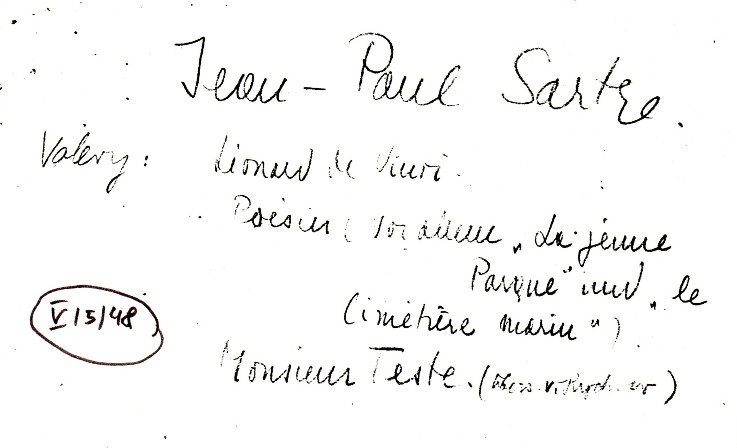 Jean-Paul Sartre.
Valéry: Léonard de Vinci.
Poésies (vor allem „La jeune
Parque" und „le
Cimetière marin")
V/5/48
Monsieur Teste. (